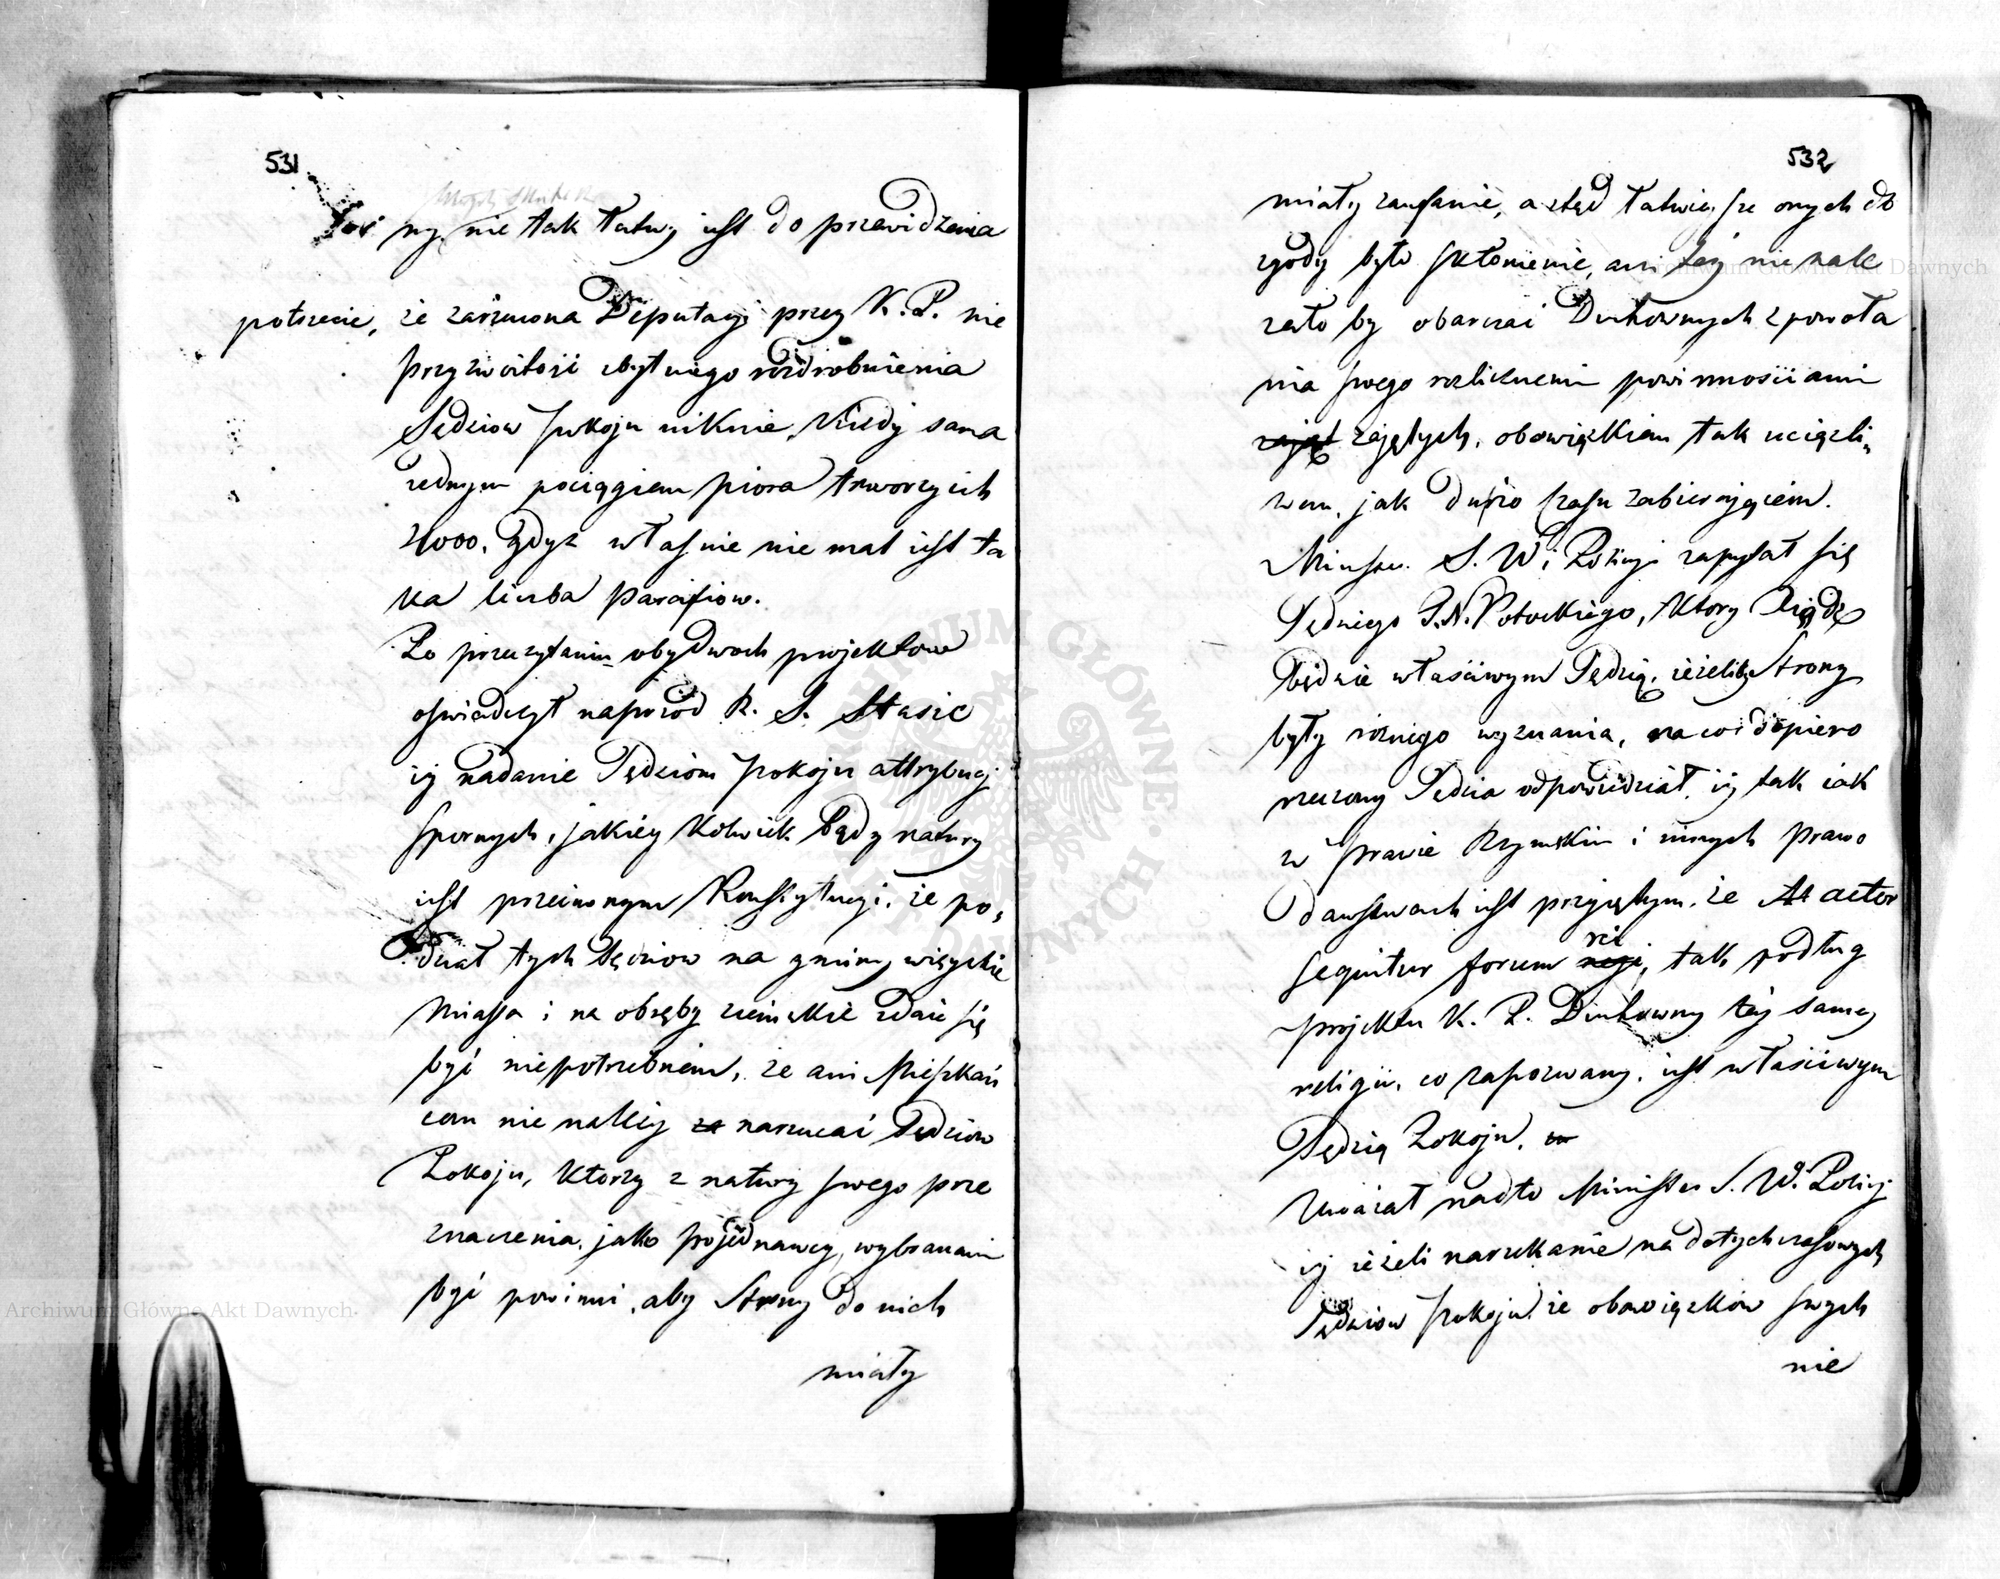 531
ny nie tak łatwy iest do przewidzenia
potrzecie, że zarzucona Deputacyi przez K. P. nie
przyzwoitość zbytniego rozdrobnienia
Sędziow pokoju niknie, kiedy sama
jednym pociągiem piora tworzy ich
2000. gdyż własnie nie mal iest ta
ka liczba parafiow.
Po przeczytaniu obydwoch projektow
oswiadczył naprzod R. S. Stasic
iż nadanie Sędziom pokoju attrybucyi
spornych, jakiey kolwiek bądź natury
iest przeciwnym Konstytucyi, że po,
dział tych Sędziow na gminy wieyskie
miasta i na obręby ziemskie zdaie się
być niepotrzebnem, że ani Mieszkań
com nie należy za narzucać Sędziow
Pokoju, ktorzy z natury swego prze
znaczenia, jako pojednawcy, wybranemi
być powinni, aby Strony do nich
miały
532
miały zaufanie, a ztąd łatwieysze onych do
zgody było skłonienie, ani też nie nale
zało by obarczać Duchownych z powoła
nia swego rozlicznemi powinnościami
zajęt zajętych, obowiązkiem tak uciążli,
wem, jak dużo czasu zabierającem.
Minister S. W. i Policyi zapytał się
Sędziego P. N. Potockiego, ktory Xiądz
będzie własciwym Sędzią, ieżeliby Strony
były roznego wyznania, na co dopiero
rzeczony Sędzia odpowiedział, iż tak iak
w prawie Rzymskim i innych prawo
dawstwach iest przyiętym, że At actor
sequitur forum regi, rei tak podług
projektu K. P. Duchowny tey samey
religii, co zapozwany, iest własciwym
Sędzią Pokoju.
Uważał nadto Minister S. W. i Policyi
iż ieżeli narzekanie na dotychczasowych
Sędziow pokoju, że obowiązkow swych
nie
Archiwum Główne Akt Dawnych
Archiwum Główne Akt Dawnych
ARCHIWUM GŁÓWNE AKT DAWNYCH